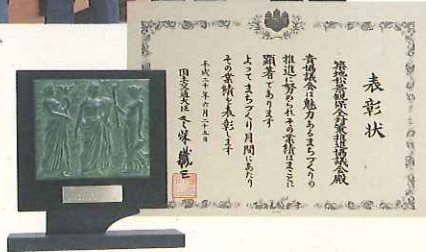 表彰状
築地松景観保全対策推進協議会殿
貴協議会は魅力あるまちづくりの
推進に努められその業績はまことに
顕著であります
よってまちづくり月間にあたり
その業績を表彰します
平成二十年六月二十五日
国土交通大臣 冬柴鐵三